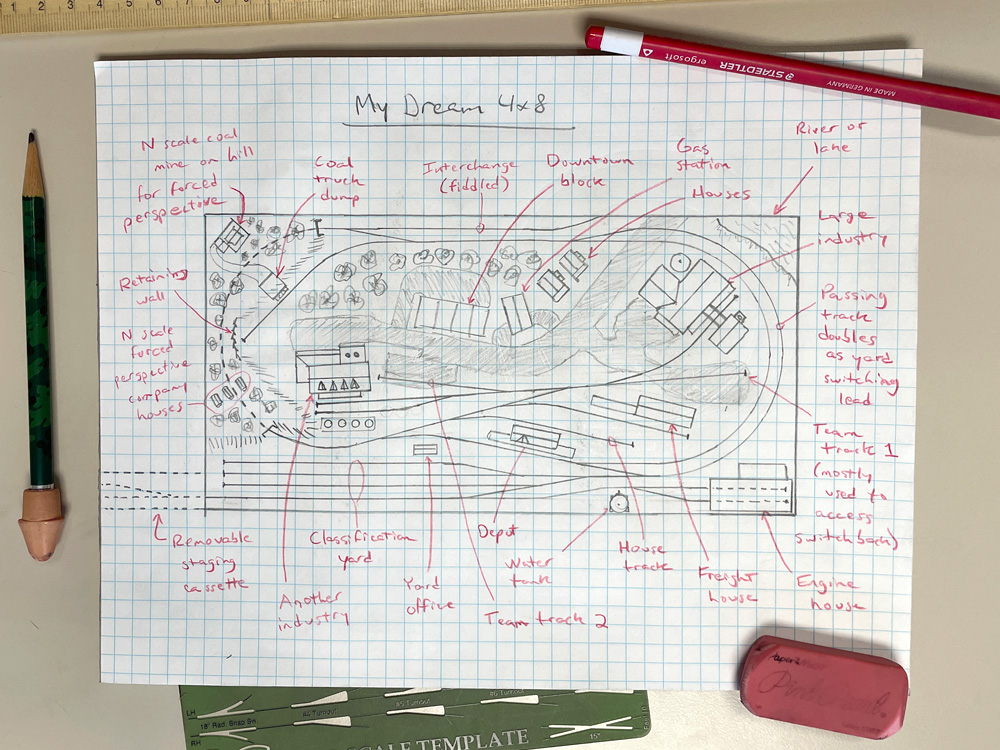 1 2 3 4 5 6 7 8 9
STAEDTLER
ergosoft
MADE IN GERMANY
My Dream 4x8
N scale coal
mine on hill
for forced
perspective
Coal
truck
dump
Interchange
(fiddled)
Downtown
block
Gas
station
Houses
River or
lake
Large
industry
Retaining
wall
N scale
forced
perspective
company
houses
Passing
track
doubles
as yard
switching
lead
Team
track 1
(mostly
used to
access
switchback)
Removable
staging
cassette
Another
industry
Classification
yard
Yard
office
Depot
Water
tank
Team track 2
House
track
Freight
house
Engine
house
LH
18" Rad. Snap Sw.
RH
#4 Turnout
#5 Turnout
#6 Turnout
15°
SCALE TEMPLATE